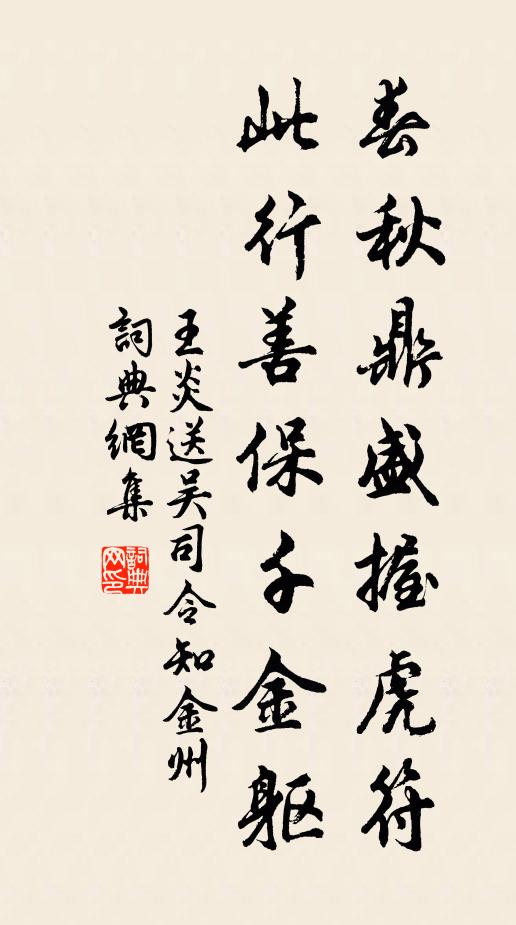 春秋鼎盛握虎符
此行善保千金軀
王炎送吴司令知金州
詞典網集
詞典網印